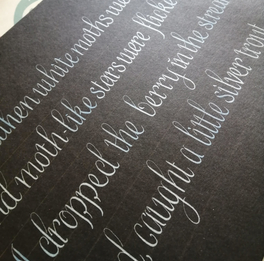 when white moths
moth-like stars were
dropped the berry in the
caught a little silver trout